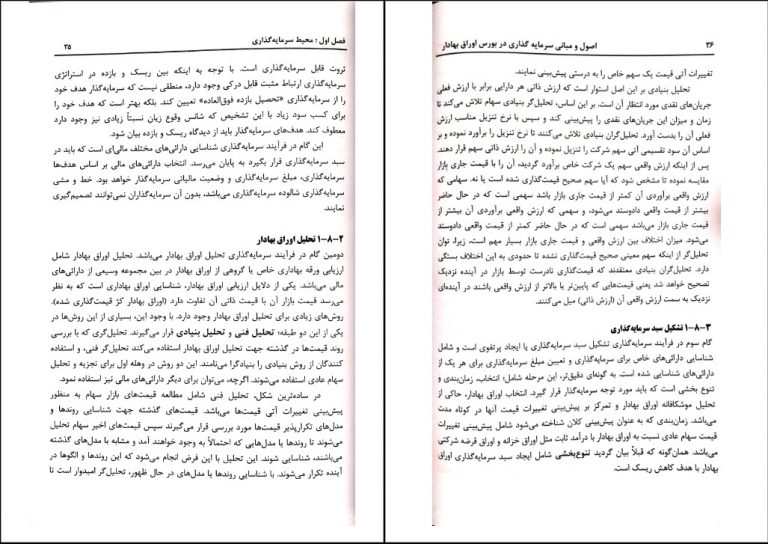 فصل اول : محیط سرمایه‌گذاری ۲۵
ثروت قابل سرمایه‌گذاری است. با توجه به اینکه بین ریسک و بازده در استراتژی
سرمایه‌گذاری ارتباط مثبت قابل درکی وجود دارد، منطقی نیست که سرمایه‌گذار هدف خود
را از سرمایه‌گذاری «تحصیل بازده فوق‌العاده» تعیین کند. بلکه بهتر است که هدف خود را
برای کسب سود زیاد با این تشخیص که شانس وقوع زیان نسبتاً زیادی نیز وجود دارد
معطوف کند. هدف‌های سرمایه‌گذار باید از دیدگاه ریسک و بازده بیان شود.
این گام در فرآیند سرمایه‌گذاری شناسایی دارائی‌های مختلف مالی‌ای است که باید در
سبد سرمایه‌گذاری قرار بگیرد به پایان می‌رسد. انتخاب دارائی‌های مالی بر اساس هدف‌ها
سرمایه‌گذاری، مبلغ سرمایه‌گذاری و وضعیت مالیاتی سرمایه‌گذار خواهد بود. خط و مشی
سرمایه‌گذاری شالوده سرمایه‌گذاری می‌باشد، بدون آن سرمایه‌گذاران نمی‌توانند تصمیم‌گیری
نمایند.
۲-۸-۱ تحلیل اوراق بهادار
دومین گام در فرآیند سرمایه‌گذاری تحلیل اوراق بهادار می‌باشد. تحلیل اوراق بهادار شامل
ارزیابی ورقه بهاداری خاص یا گروهی از اوراق بهادار در بین مجموعه وسیعی از دارائی‌های
مالی می‌باشد. یکی از دلایل ارزیابی اوراق بهادار، شناسایی اوراق بهاداری است که به نظر
می‌رسد قیمت بازار آن با قیمت ذاتی آن تفاوت دارد (اوراق بهادار کژ قیمت‌گذاری شده).
روش‌های زیادی برای تحلیل اوراق بهادار وجود دارد. با وجود این، بسیاری از این روش‌ها در
یکی از این دو طبقه؛ تحلیل فنی و تحلیل بنیادی قرار می‌گیرند. تحلیل‌گری که با بررسی
روند قیمت‌ها در گذشته جهت تحلیل اوراق بهادار استفاده می‌کند تحلیل‌گر فنی، و استفاده
کنندگان از روش بنیادی را بنیادگرا می‌نامند. این دو روش در وهله اول برای تجزیه و تحلیل
سهام عادی استفاده می‌شوند. اگرچه، می‌توان برای دیگر دارائی‌های مالی نیز استفاده نمود.
در ساده‌ترین شکل، تحلیل فنی شامل مطالعه قیمت‌های بازار سهام به منظور
پیش‌بینی تغییرات آتی قیمت‌ها می‌باشد. قیمت‌های گذشته جهت شناسایی روندها و
مدل‌های تکرارپذیر قیمت‌ها مورد بررسی قرار می‌گیرند سپس قیمت‌های اخیر سهام تحلیل
می‌شوند تا روندها یا مدل‌هایی که احتمالاً به وجود خواهند آمد و مشابه با مدل‌های گذشته
می‌باشند، شناسایی شوند. این تحلیل با این فرض انجام می‌شود که این روندها و الگوها در
آینده تکرار می‌شوند. با شناسایی روندها یا مدل‌های در حال ظهور، تحلیل‌گر امیدوار است تا
۲۶ اصول و مبانی سرمایه گذاری در بورس اوراق بهادار
تغییرات آتی قیمت یک سهم خاص را به درستی پیش‌بینی نمایند.
تحلیل بنیادی بر این اصل استوار است که ارزش ذاتی هر دارایی برابر با ارزش فعلی
جریان‌های نقدی مورد انتظار آن است. بر این اساس، تحلیل‌گر بنیادی سهام تلاش می‌کند تا
زمان و میزان این جریان‌های نقدی را پیش‌بینی کند و سپس با نرخ تنزیل مناسب ارزش
فعلی آن را بدست آورد. تحلیل‌گران بنیادی تلاش می‌کنند تا نرخ تنزیل را برآورد نموده و بر
اساس آن سود تقسیمی آتی سهم شرکت را تنزیل نموده و آن را ارزش ذاتی سهم قرار دهند.
پس از اینکه ارزش واقعی سهم یک شرکت خاص برآورد گردید، آن را با قیمت جاری بازار
مقایسه نموده تا مشخص شود که آیا سهم صحیح قیمت‌گذاری شده است یا نه. سهامی که
ارزش واقعی برآوردی آن کمتر از قیمت جاری بازار باشد سهمی است که در حال حاضر
بیشتر از قیمت واقعی دادوستد می‌شود، و سهمی که ارزش واقعی برآوردی آن بیشتر از
قیمت جاری بازار می‌باشد سهمی است که در حال حاضر کمتر از قیمت واقعی دادوستد
می‌شود. میزان اختلاف بین ارزش واقعی و قیمت جاری بازار بسیار مهم است، زیرا، توان
تحلیل‌گر از اینکه سهم معینی صحیح قیمت‌گذاری نشده تا حدودی به این اختلاف بستگی
دارد. تحلیل‌گران بنیادی معتقدند که قیمت‌گذاری نادرست توسط بازار در آینده نزدیک
تصحیح خواهد شد یعنی قیمت‌هایی که پایین‌تر یا بالاتر از ارزش واقعی باشند در آینده‌ای
نزدیک به سمت ارزش واقعی آن (ارزش ذاتی) میل می‌کنند.
۳-۸-۱ تشکیل سبد سرمایه‌گذاری
گام سوم در فرآیند سرمایه‌گذاری تشکیل سبد سرمایه‌گذاری یا ایجاد پرتفوی است و شامل
شناسایی دارائی‌های خاص برای سرمایه‌گذاری و تعیین مبلغ سرمایه‌گذاری برای هر یک از
دارائی‌های شناسایی شده است. به گونه‌ای دقیق‌تر، این مرحله شامل؛ انتخاب، زمان‌بندی و
تنوع بخشی است که باید مورد توجه سرمایه‌گذار قرار گیرد. انتخاب اوراق بهادار، حاکی از
تحلیل موشکافانه اوراق بهادار و تمرکز بر پیش‌بینی تغییرات قیمت آنها در کوتاه مدت
می‌باشد. زمان‌بندی که به عنوان پیش‌بینی کلان شناخته می‌شود شامل پیش‌بینی تغییرات
قیمت سهام عادی نسبت به اوراق بهادار با درآمد ثابت مثل اوراق خزانه و اوراق قرضه شرکتی
می‌باشد. همان‌گونه که قبلاً بیان گردید تنوع‌بخشی شامل ایجاد سبد سرمایه‌گذاری اوراق
بهادار با هدف کاهش ریسک است.